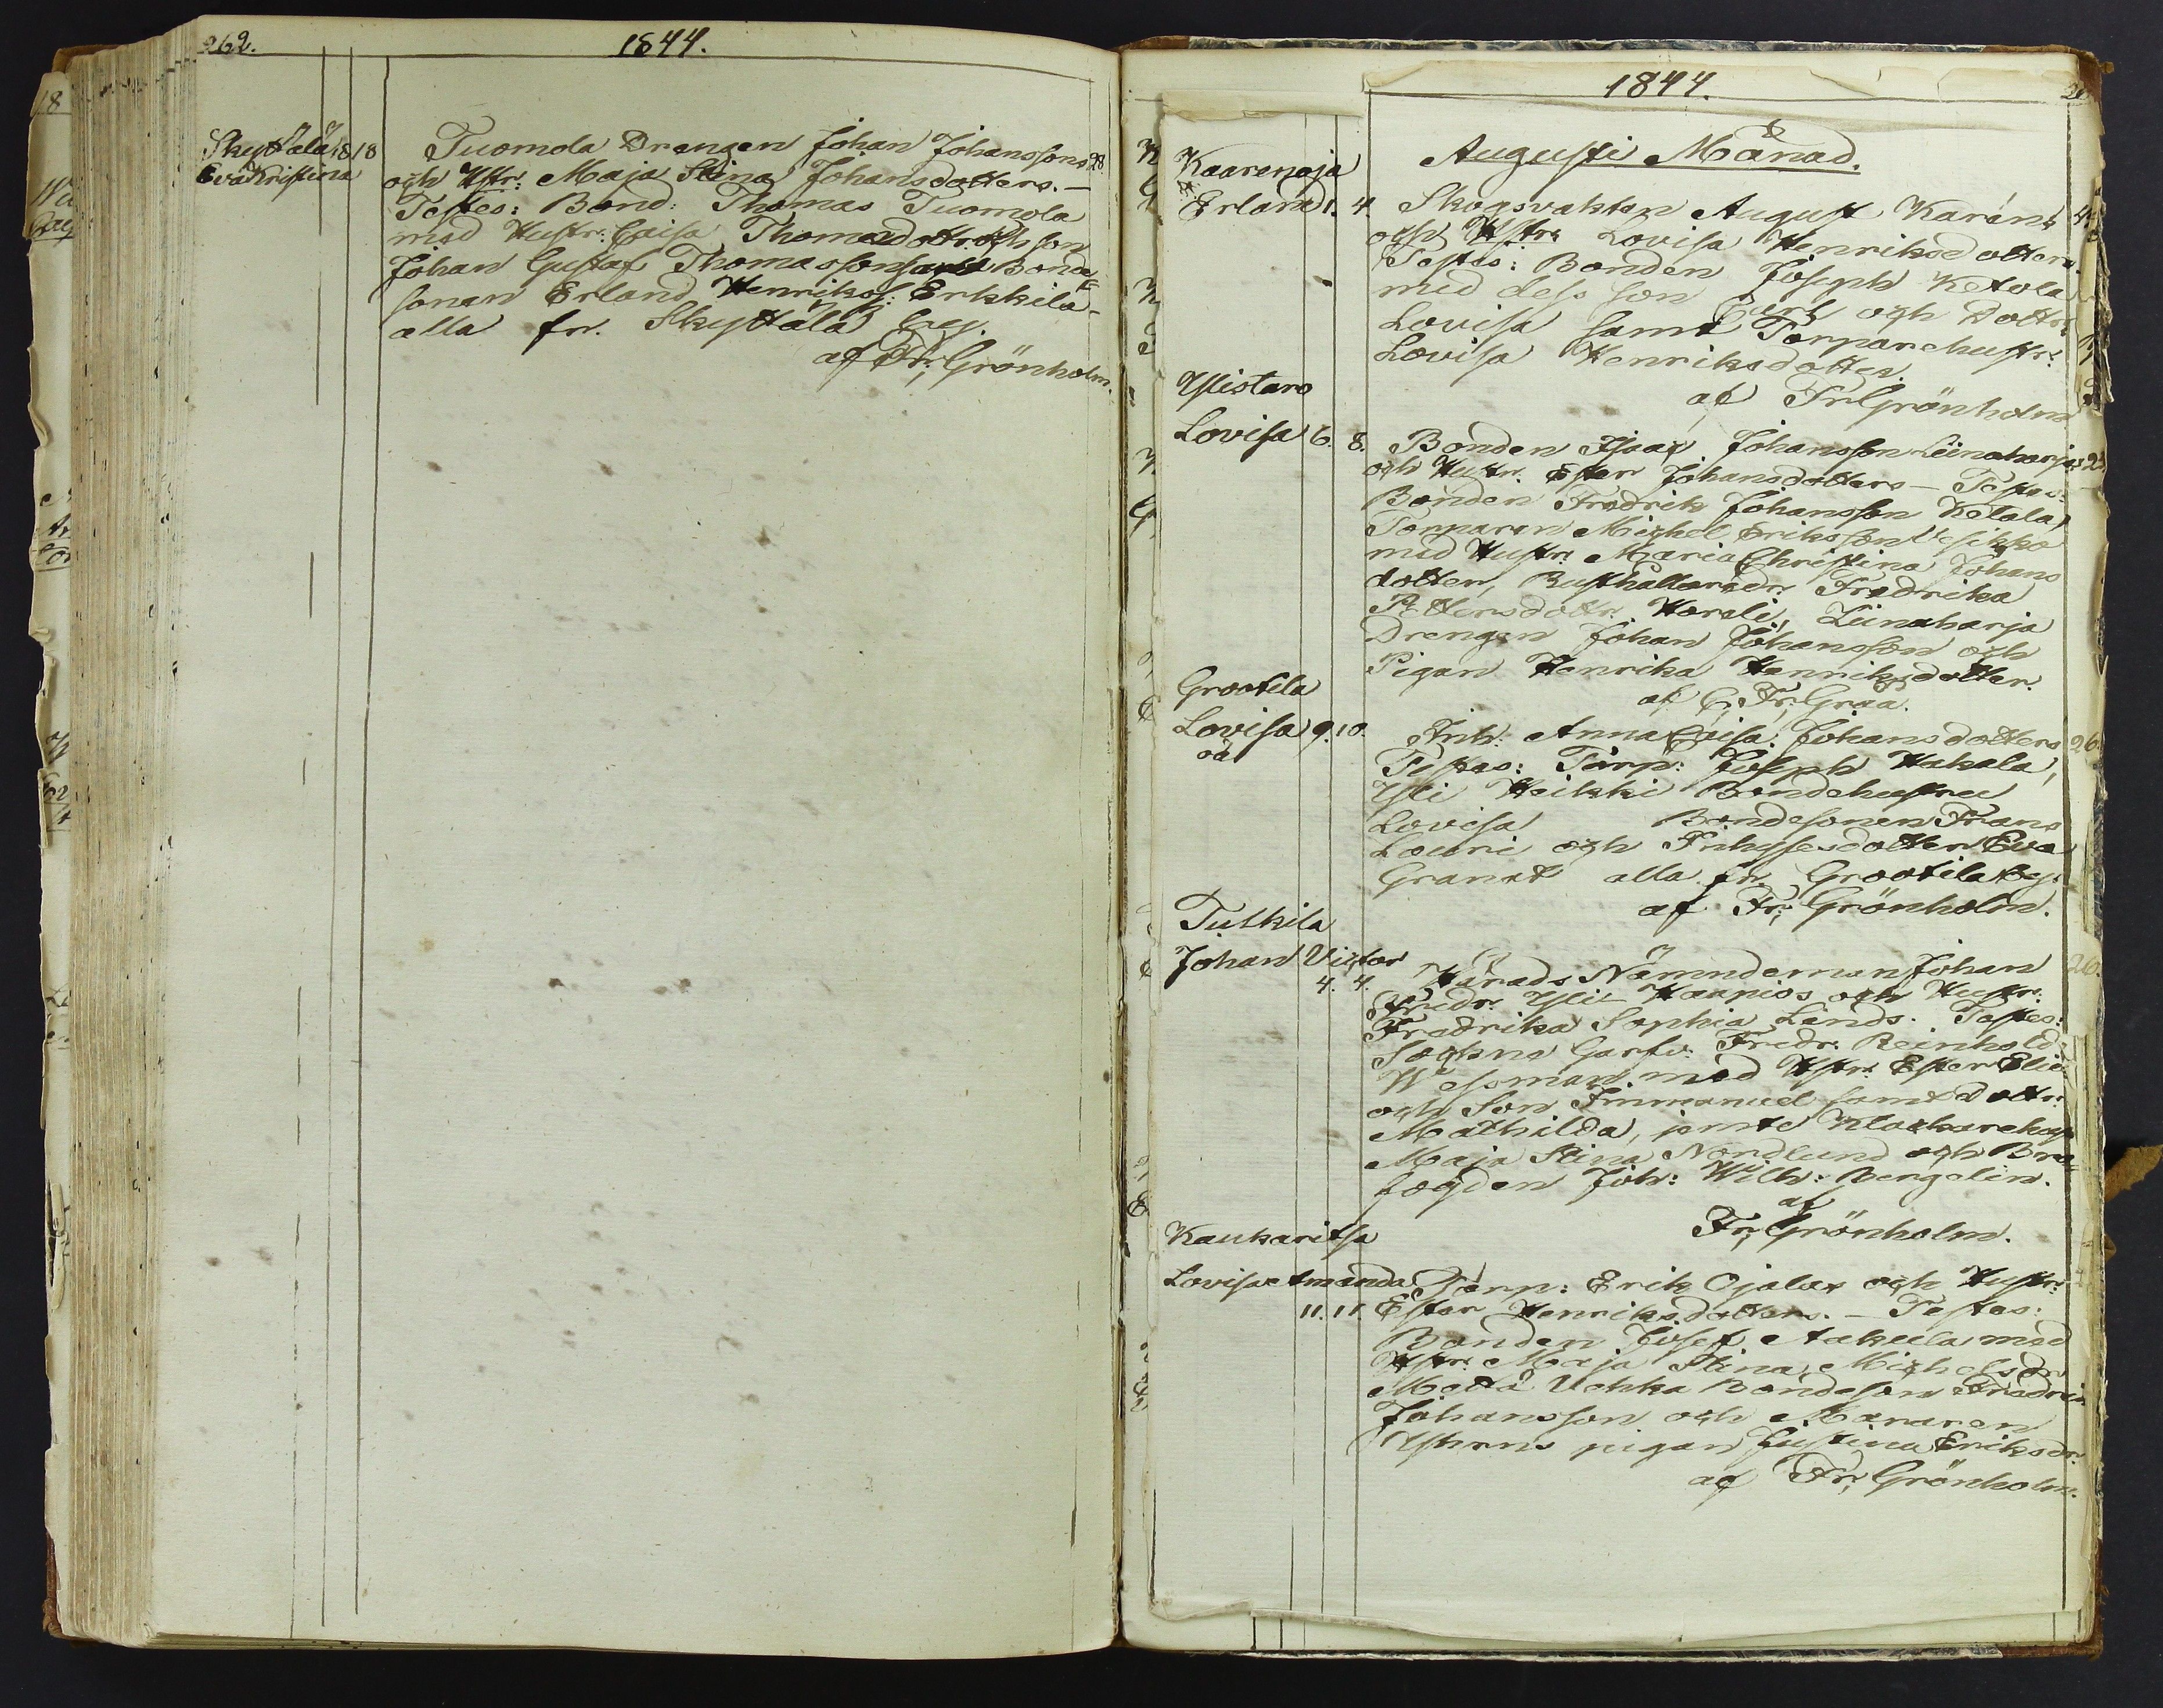 262.
1844.
Skyttälä 18 18
Eva Kristina
Tuomola Drengen Johan Johanssons 28
och Hstr: Maja Stina Johansdotters. —
Testes: Bond: Thomas Tuomola
med Hustr: Caisa Thomædottr. och son
Johan Gustaf Thomasson samt Bonde
sonen Erland Henrikss: Erkkilä
alla fr. Skyttälä by.
af Fr; Grönholm.
1844.
Augusti Månad.
Kaarenoja
Erland 1. 4. Skogsvakten August Karéns
och Hstr: Lovisa Henriksdotters.
Testes: Bonden Joseph Ketola
med dess son Carl och Dottr:
Lovisa samt Torparehustr:
Lovisa Henriksdotter.
af Fr; Grönholm
Ylistaro
Lovisa 6. 8. Bonden Isaac Johansson Liinaharjas 25.
och Hustr. Ester Johansdotters — Testes:
Bonden Fredrik Johansson Ketala,
Torparen Michel Eriksson Vesikko
med Hustr: Maria Christina Johans
dotter, Rusthållaredr. Fredrika
Pettersdottr. Horeli, Liinaharja
Drengen Johan Johansson och
Pigan Henrika Henriksdotter.
af C; Fr; Graa.
Grootila
Lovisa 9. 10. Inh: Anna Caisa Johansdotters 26.
oä
Testes: Torp: Joseph Hakala,
Yli Heikki Bondehustru
Lovisa Bondesonen Frans
Louri och Inhysesdotter Eva
Granat alla fr. Grootila by.
af Fr; Grönholm.
Tulkila
Johan Victor
4. 4. Härads Nämndeman Johan 26.
Fredr. Yli Haapios och Hustr.
Fredrika Sophia Linds. Testes:
Sockne Garfv: Fredr. Reinhold
Wesoman med Hstr: Ester Elis:
och Son Emmanuel samt Dottr:
Mathilda, jemte Klockarehus
Maja Stina Nordlund och Bro
fogden Joh: Wilh: Bengelin.
af
Fr; Grönholm.
Kaukaritsa
Lovisa Amanda Torp: Erik Ojalas och Hustr:
11. 11. Ester Henriksdotters. — Testes:
Bonden Josef Aakula med
Hstr: Maja Stina Michelsdr
Matts Uchka Bondeson Fredric
Johansson och
pigan Justina Eriksdr.
af Fr; Grönholm.